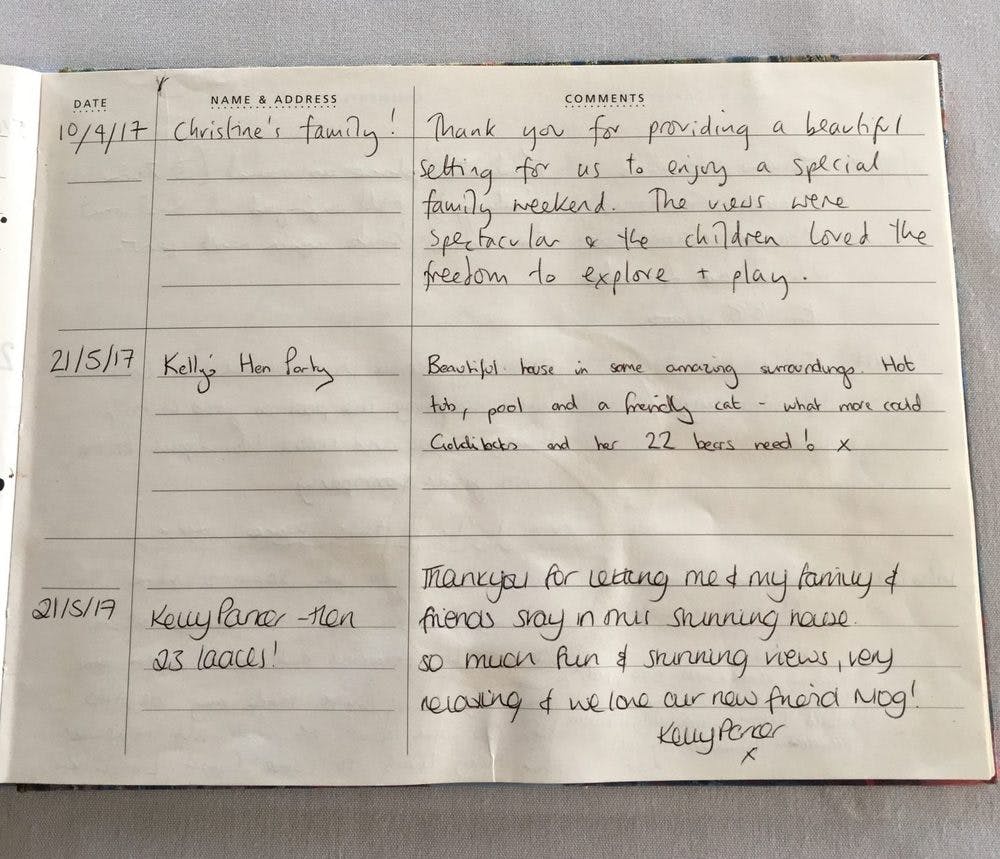 DATE NAME & ADDRESS COMMENTS
10/4/17 Christine's family! Thank you for providing a beautiful
setting for us to enjoy a special
family weekend. The views were
spectacular & the children loved the
freedom to explore + play.
21/5/17 Kelly's Hen Party Beautiful house in some amazing surroundings. Hot
tub, pool and a friendly cat - what more could
Goldilocks and her 22 bears need! x
Thankyou for letting me & my family &
21/5/17 Kelly Parker - Hen friends stay in this stunning house.
23 ladies! so much fun & stunning views, very
relaxing & we love our new friend Mog!
Kelly Parker
x